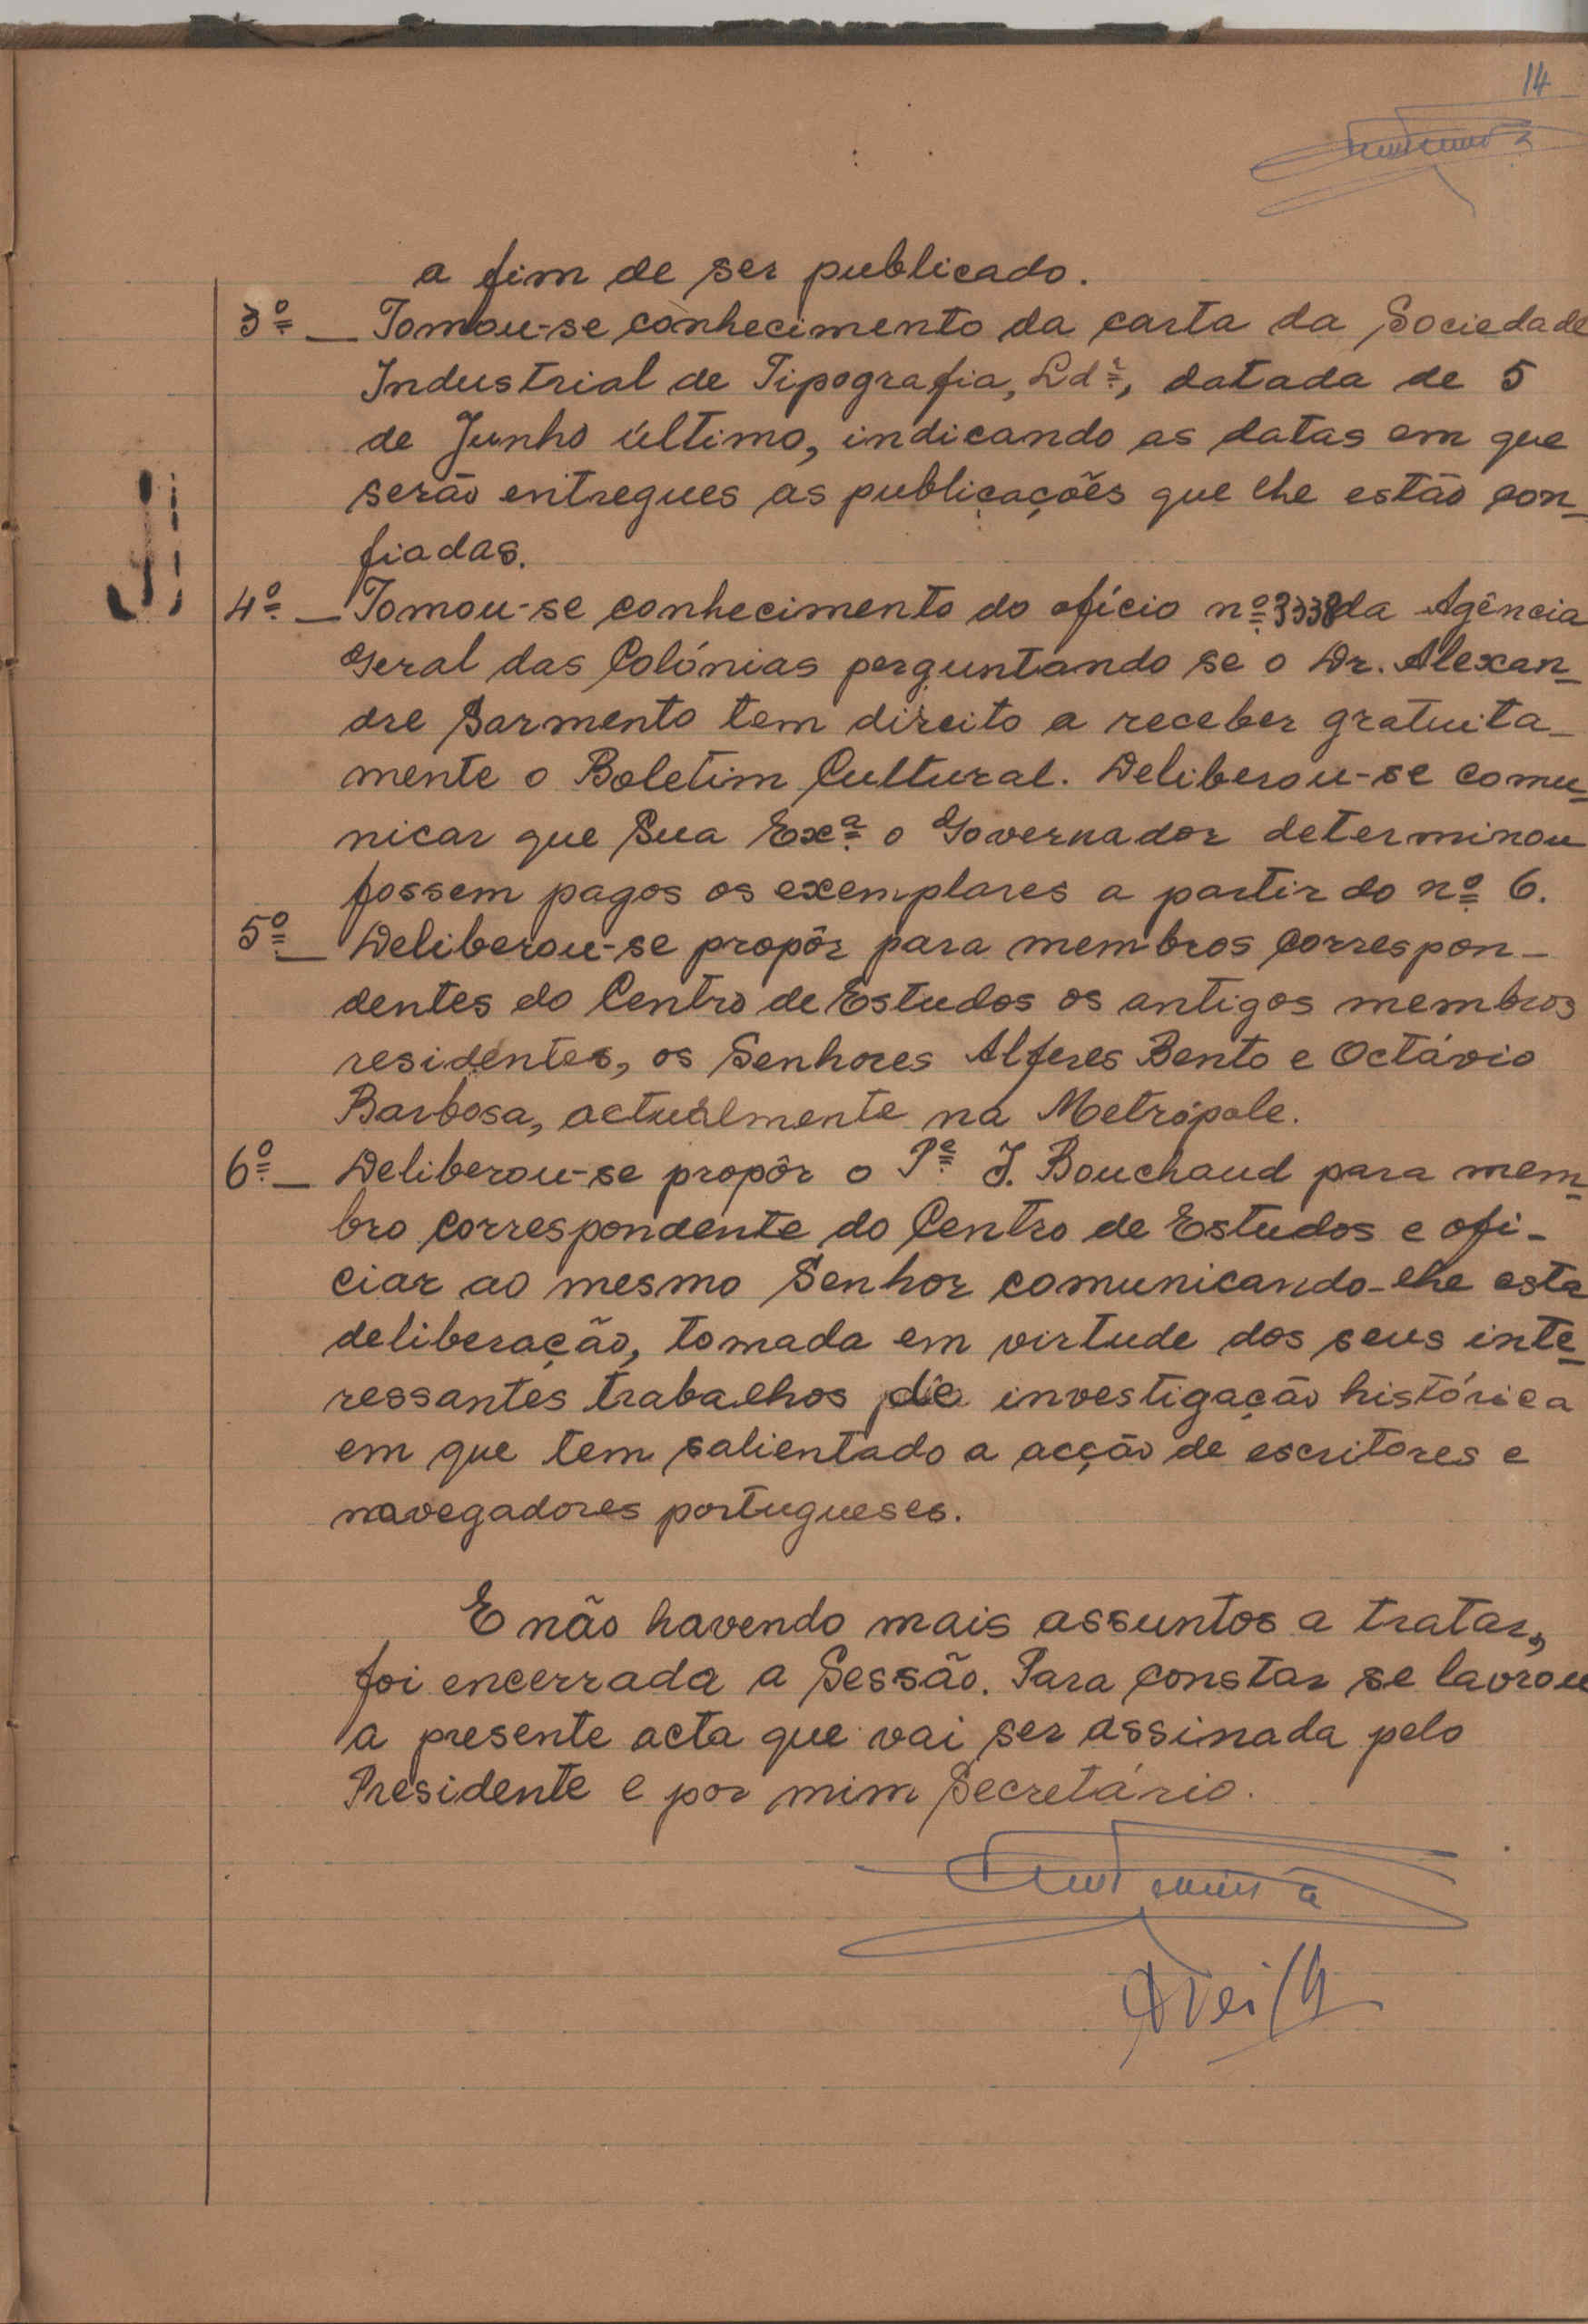 14
a fim de ser publicado.
3º — Tomou-se conhecimento da carta da Sociedade
Industrial de Tipografia, Ldª, datada de 5
de Junho último, indicando as datas em que
serão entregues as publicações que lhe estão con-
fiadas.
4º — Tomou-se conhecimento do ofício nº 3338 da Agência
Geral das Colónias perguntando se o Dr. Alexan-
dre Sarmento tem direito a receber gratuita-
mente o Boletim Cultural. Deliberou-se comu-
nicar que Sua Exª o Governador determinou
fossem pagos os exemplares a partir do nº 6.
5º — Deliberou-se propôr para membros correspon-
dentes do Centro de Estudos os antigos membros
residentes, os Senhores Alferes Bento e Octávio
Barbosa, actualmente na Metrópole.
6º — Deliberou-se propôr o Pe J. Bouchaud para mem-
bro correspondente do Centro de Estudos e ofi-
ciar ao mesmo Senhor comunicando-lhe esta
deliberação, tomada em virtude dos seus inte-
ressantes trabalhos de investigação histórica
em que tem salientado a acção de escritores e
navegadores portugueses.
E não havendo mais assuntos a tratar,
foi encerrada a Sessão. Para constar se lavrou
a presente acta que vai ser assinada pelo
Presidente e por mim Secretário.